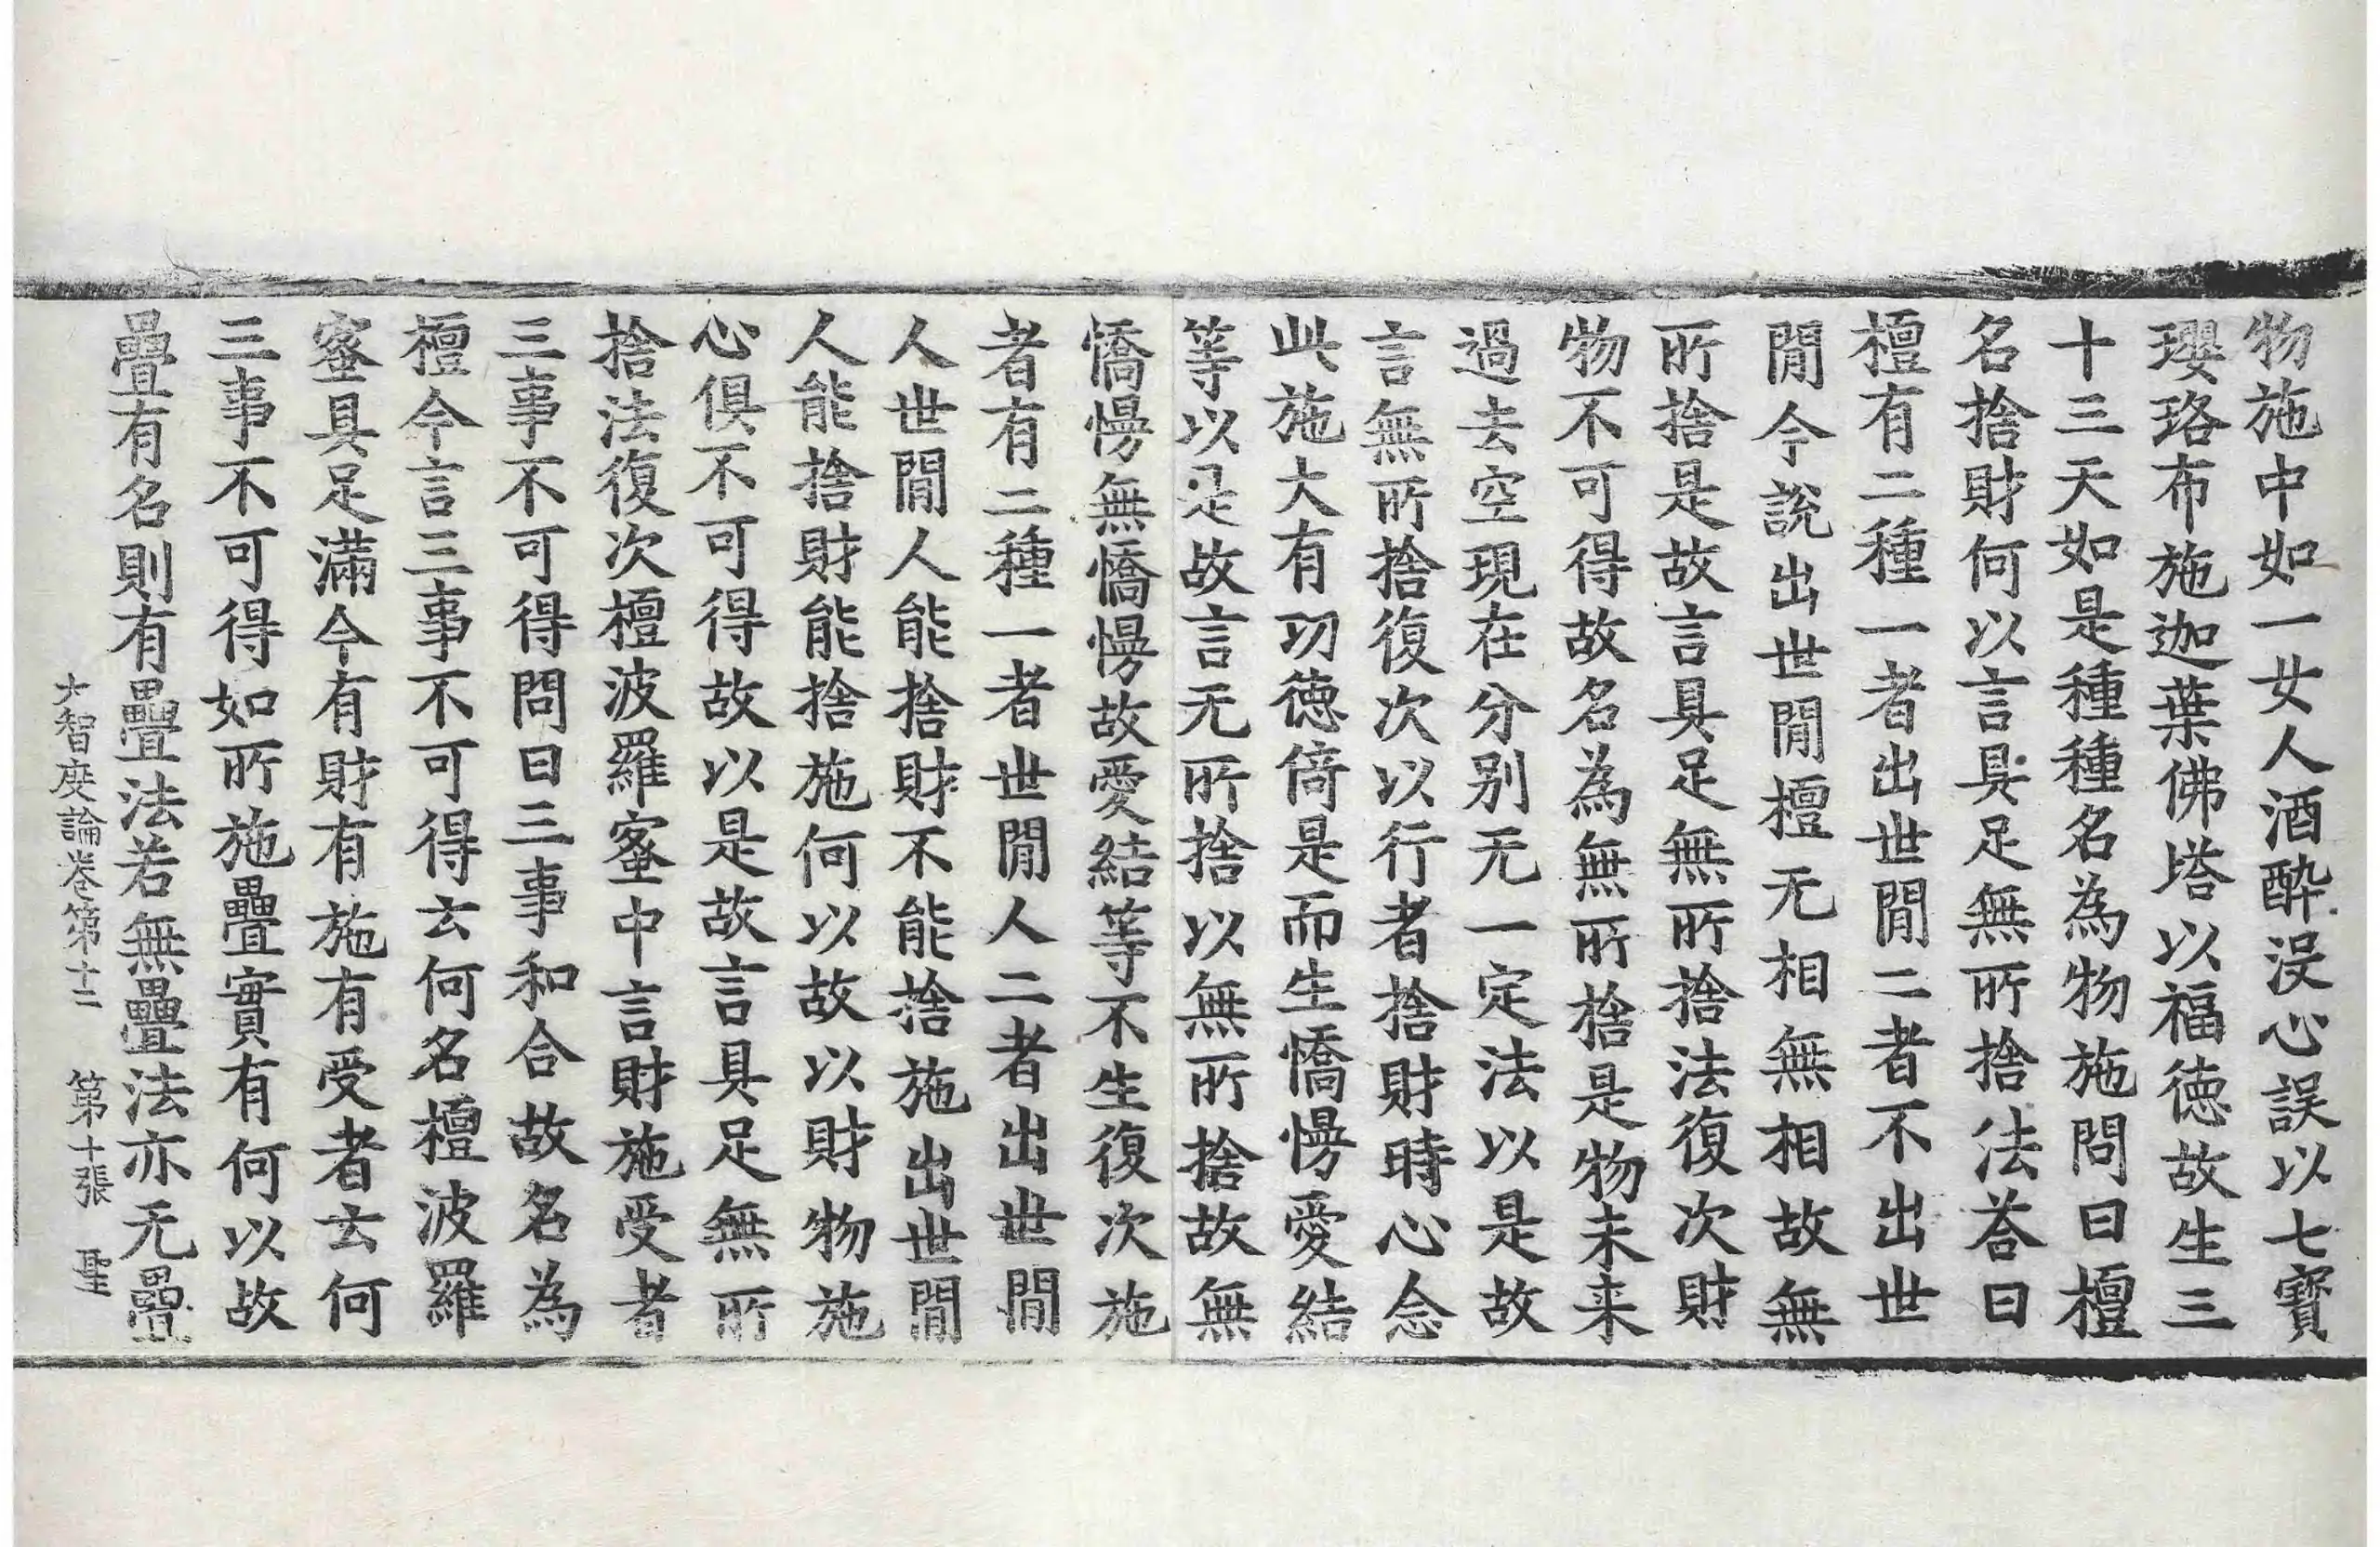 物施中如一女人酒醉沒心誤以七寳
瓔珞布施迦葉佛塔以福徳故生三
十三天如是種種名為物施問曰檀
名捨財何以言具足無所捨法荅曰
檀有二種一者出世閒二者不出世
閒今說出世閒檀无相無相故無
所捨是故言具足無所捨法復次財
物不可得故名為無所捨是物未来
過去空現在分别无一定法以是故
言無所捨復次以行者捨財時心念
此施大有功徳倚是而生憍慢愛結
等以是故言无所捨以無所捨故無
憍慢無憍慢故愛結等不生復次施
者有二種一者世閒人二者出世閒
人世閒人能捨財不能捨施出世閒
人能捨財能捨施何以故以財物施
心俱不可得故以是故言具足無所
捨法復次檀波羅蜜中言財施受者
三事不可得問曰三事和合故名為
檀今言三事不可得云何名檀波羅
蜜具足滿今有財有施有受者云何
三事不可得如所施疊實有何以故
疊有名則有疊法若無疊法亦无疊
大智度論卷第十二 第十張 聖